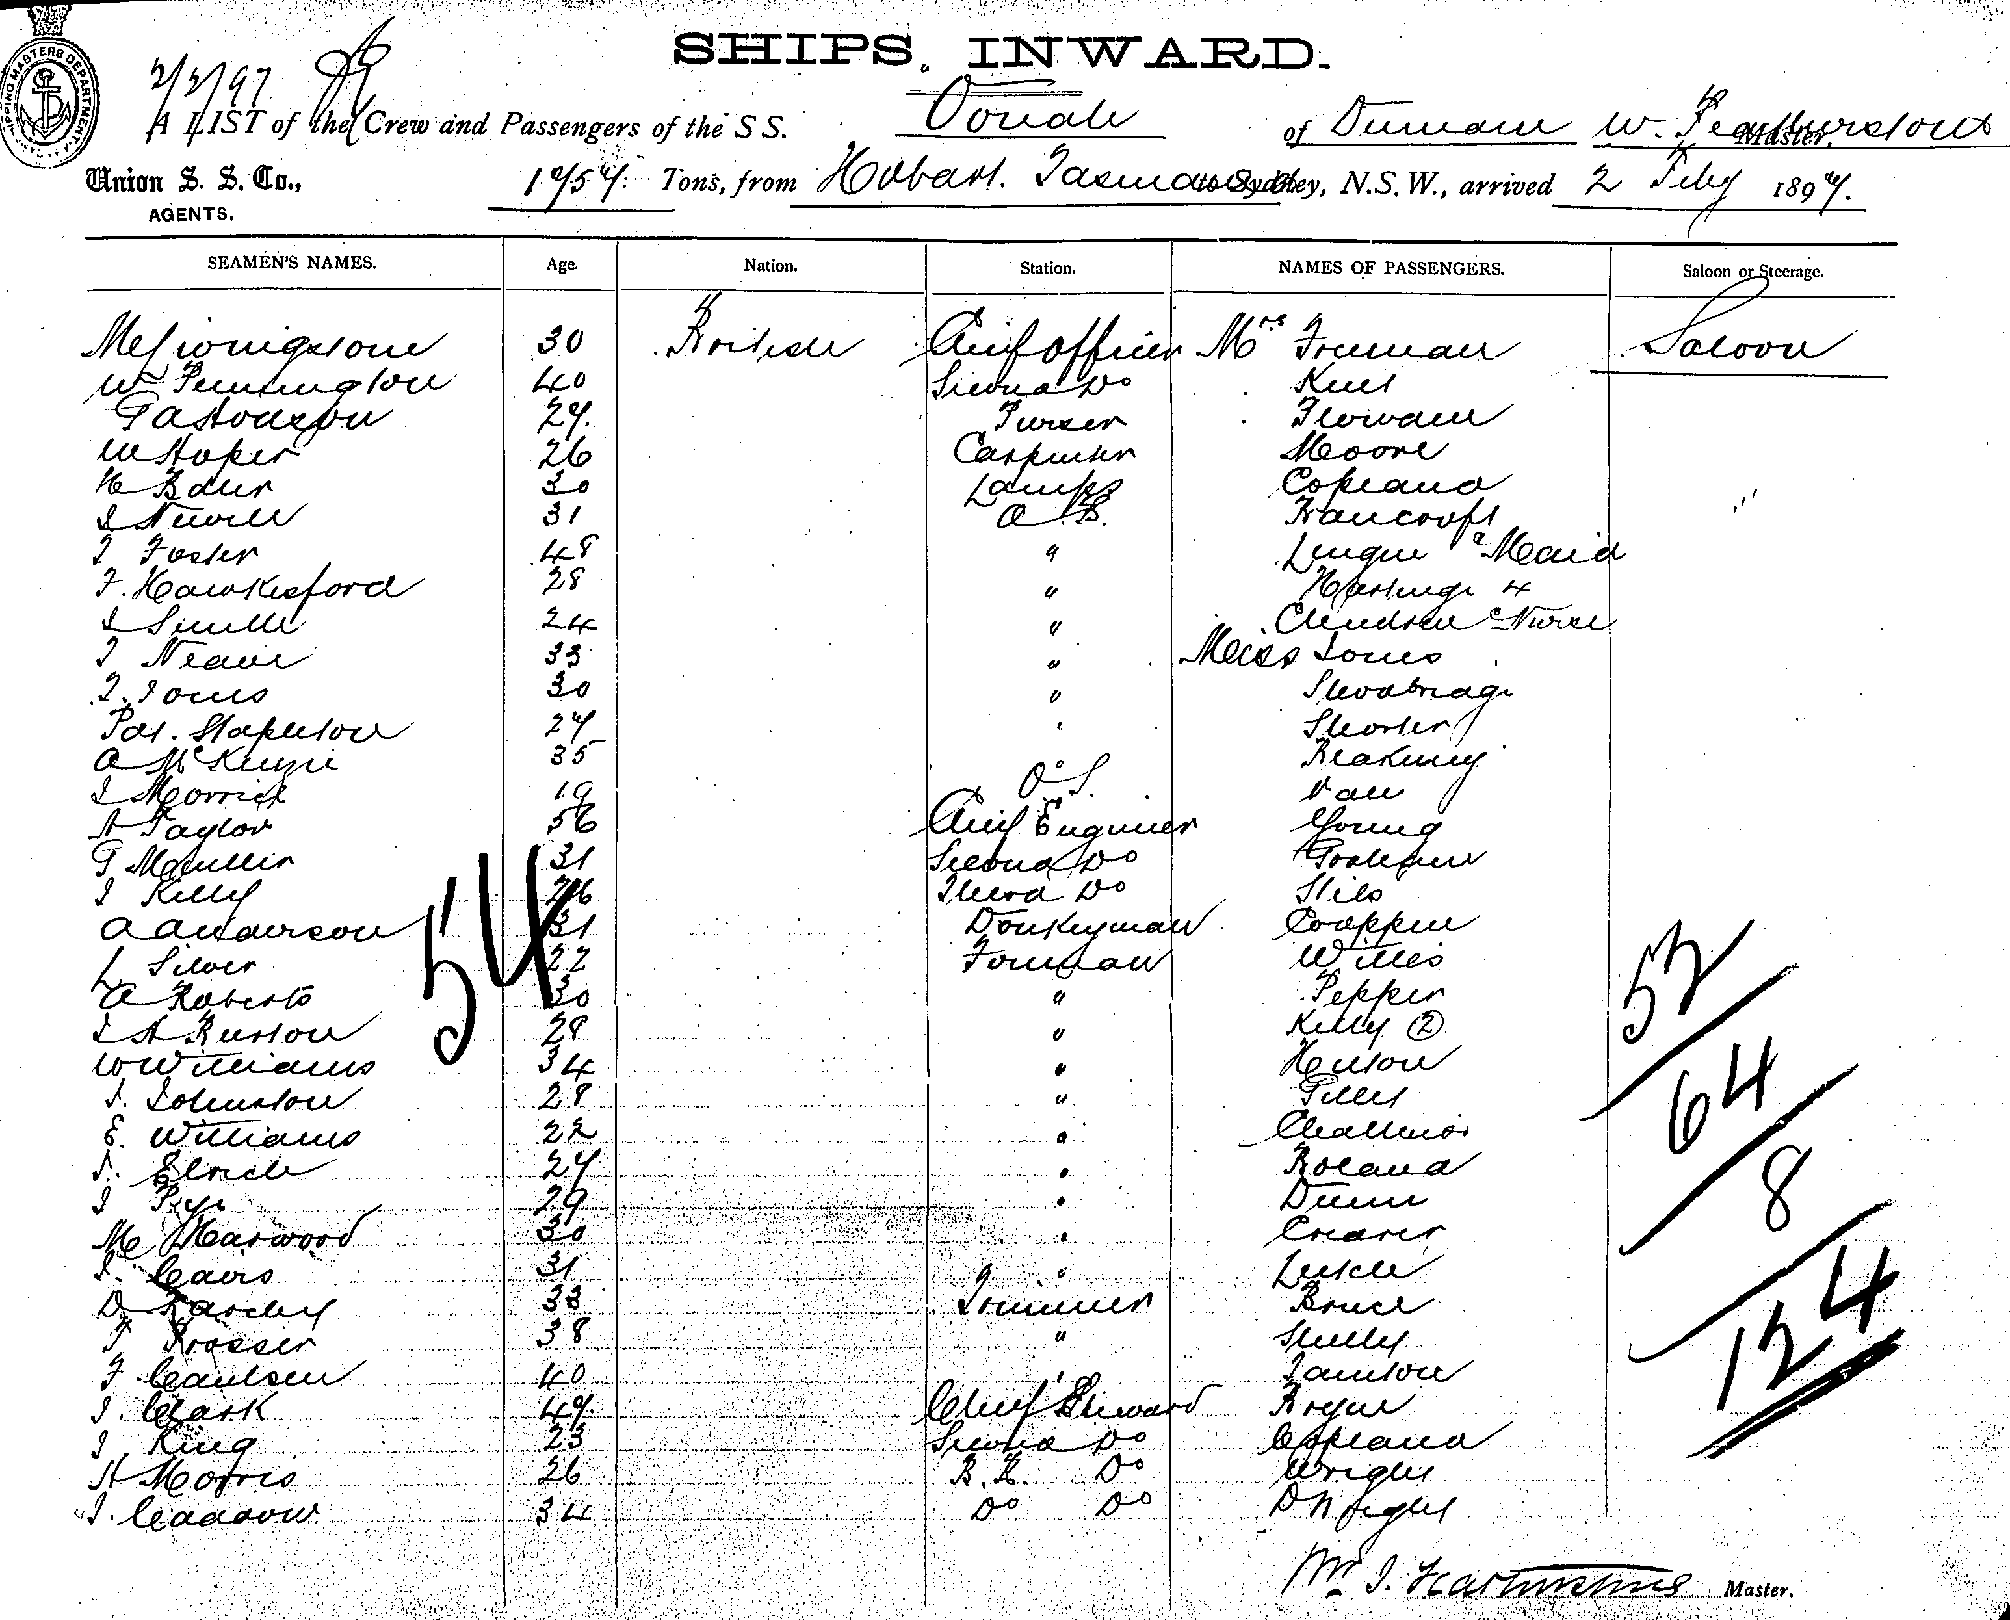 SHIPS, INWARD.
SHIPPING MASTERS DEPARTMENT
2/2/97
A LIST of the Crew and Passengers of the S S. Oonah of Dunedin W. Featherstone Master.
Union S. S. Co., 1757 Tons, from Hobart. Tasmania to Sydney, N.S.W., arrived 2 Feby 1897.
AGENTS.
SEAMEN'S NAMES. Age. Nation. Station. NAMES OF PASSENGERS. Saloon or Steerage.
M Livingstone 30 British Chief Officer Mrs Freeman Saloon
W Pennington 40 Second Do Kent
G A Hodgson 27. Purser
W Hoper 26 Carpenter Moore
H 30 Lamps Copland
J Nevill 31 A B. Bancroft
J Foster 48 " Maid
F. Hawkesford 28 " Hastings 4
J Smith 24 " Children & Nurse
J 33 " Miss Jones
J. Jones 30 " Stoobridge
Pat. Stapleton 27 " Shorter
A McKenzie 35 Blakeney
J Morrish 19 O. S.
H Taylor 56 Chief Engineer Young
G Maullin 31 Second Do
J Kelly 26 Third Do
A Anderson 31 Donkeyman
L Silver 22 Foreman Willis
A Roberts 30 " Pepper
J H Burton 28 " Kelly (2)
W Williams 34 " Henson
J. Johnston 28 "
E. Williams 22 "
J. 27 " Boland
J Pye 29 " Dunn
M Harwood 30 " Crearer
J. 31 "
D 33 Trimmer Bruce
P Prosser 38 "
F 40 Jamison
J. Clark 47 Chief Steward
J. King 23 Second Do Copland
H Morris 26 B. R. Do Wright
J. Caddow 34 Do Do D Wright
54
52
64
8
124
Wm J. Featherstone Master.